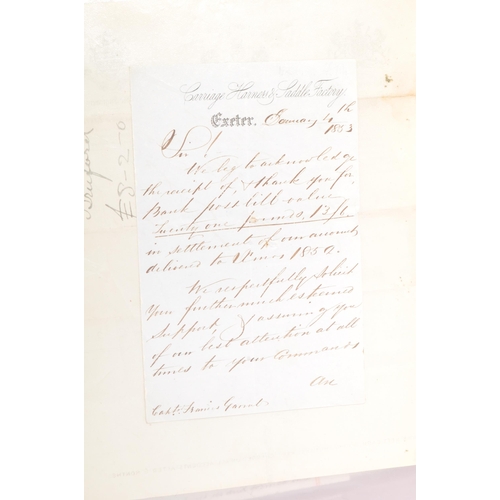 Carriage Harness & Saddle Factory,
Exeter. January 4th
1853
Sir!
We beg to acknowledge
the receipt of, & thank you for
Bank post bill value
Twenty one pounds, 13/6
in settlement of our account
delivered to Xmas 1852.
We respectfully solicit
your further much esteemed
support, & assuring you
of our best attention at all
times to your Commands
Are
Captn. Francis
£8-2-0